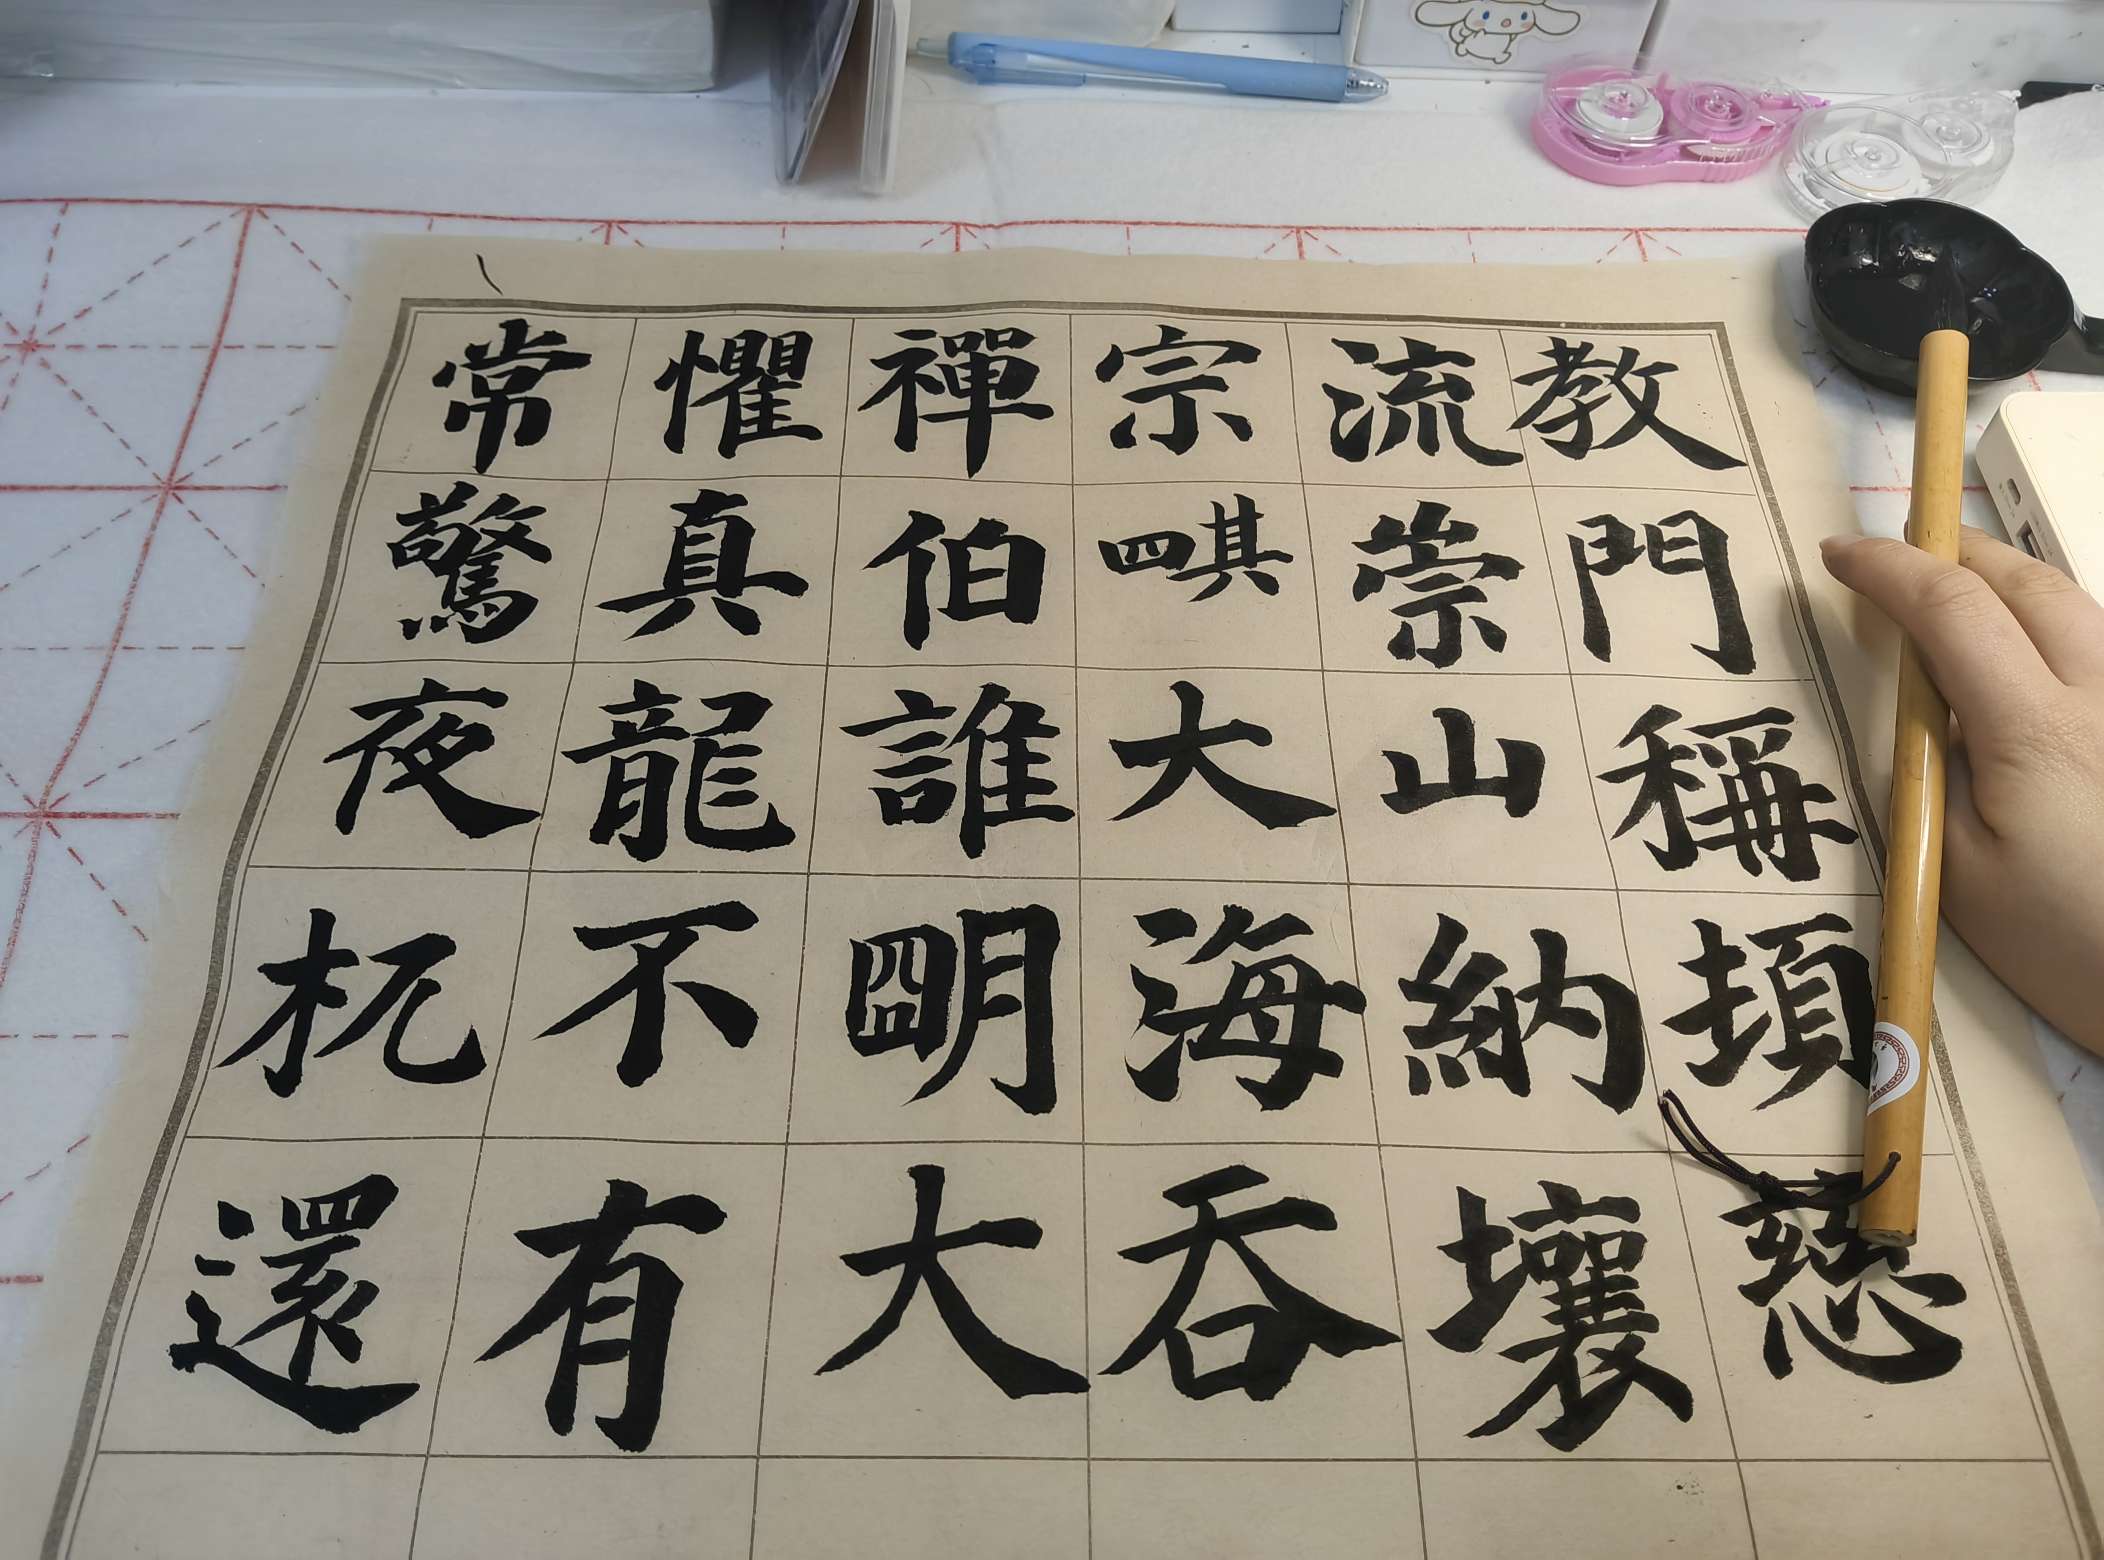 教門稱頓慈
流崇山納壤
宗大海吞
禪伯誰朙大
懼真龍不有
常驚夜杌還